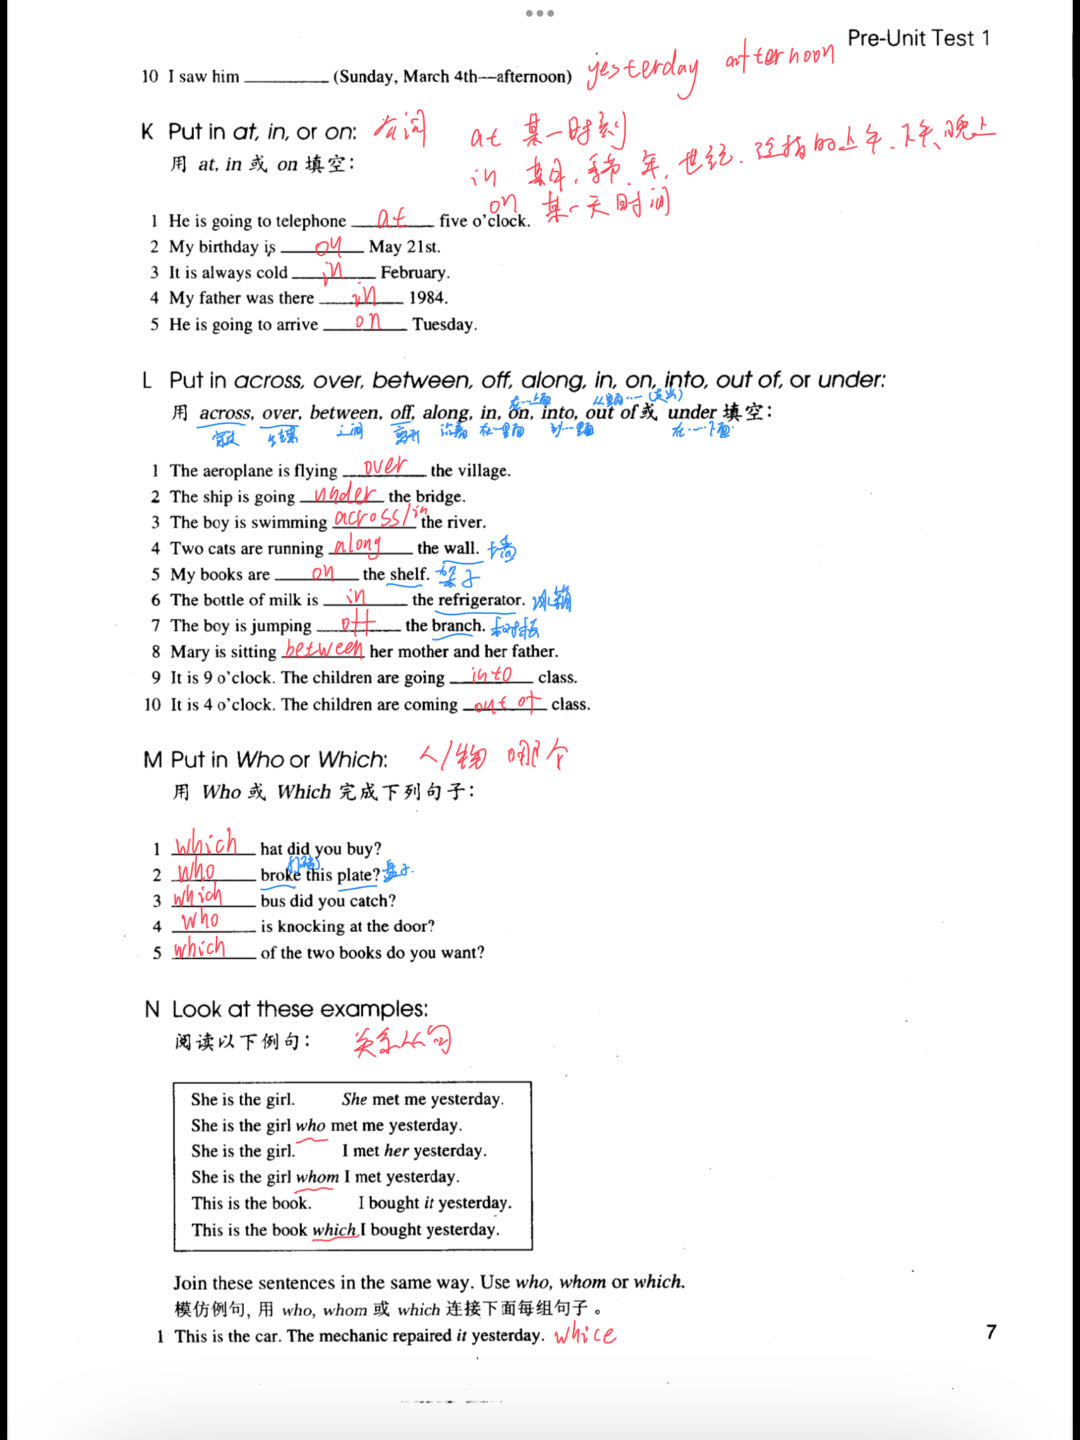 Pre-Unit Test 1
10 I saw him ________ (Sunday, March 4th—afternoon) yesterday afternoon
K Put in at, in, or on: 介词 at 某一时刻
用 at, in 或 on 填空: in 某月, 季节, 年, 世纪, 泛指的上午、下午、晚上
on 某一天时间
1 He is going to telephone at five o'clock.
2 My birthday is on May 21st.
3 It is always cold in February.
4 My father was there in 1984.
5 He is going to arrive on Tuesday.
L Put in across, over, between, off, along, in, on, into, out of, or under:
在…上面 从里面… (走出)
用 across, over, between, off, along, in, on, into, out of 或 under 填空:
之间 离开 沿着 在…里面 到…里面 在……下面
1 The aeroplane is flying over the village.
2 The ship is going under the bridge.
3 The boy is swimming across/in the river.
4 Two cats are running along the wall. 墙
5 My books are on the shelf. 架子
6 The bottle of milk is in the refrigerator. 冰箱
7 The boy is jumping off the branch. 树枝
8 Mary is sitting between her mother and her father.
9 It is 9 o'clock. The children are going into class.
10 It is 4 o'clock. The children are coming out of class.
M Put in Who or Which: 人/物 哪个
用 Who 或 Which 完成下列句子:
1 which hat did you buy?
(打破)
2 who broke this plate? 盘子.
3 which bus did you catch?
4 who is knocking at the door?
5 which of the two books do you want?
N Look at these examples:
阅读以下例句: 关系从句
She is the girl. She met me yesterday.
She is the girl who met me yesterday.
She is the girl. I met her yesterday.
She is the girl whom I met yesterday.
This is the book. I bought it yesterday.
This is the book which I bought yesterday.
Join these sentences in the same way. Use who, whom or which.
模仿例句, 用 who, whom 或 which 连接下面每组句子。
1 This is the car. The mechanic repaired it yesterday. whice
7